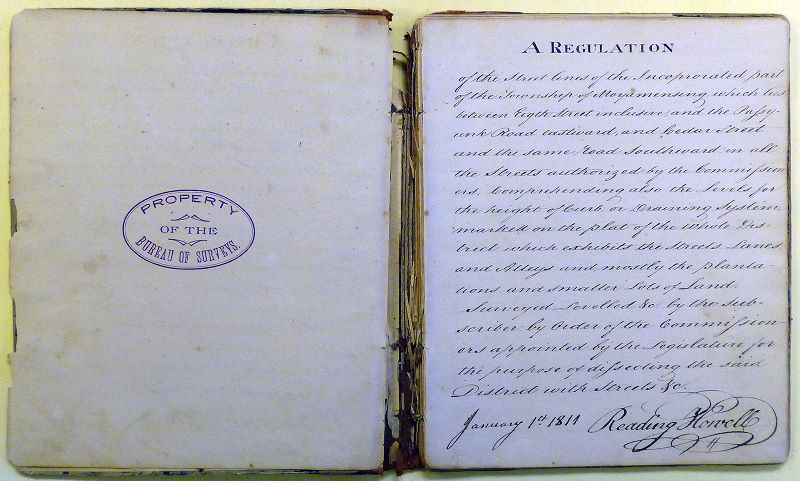 PROPERTY
OF THE
BUREAU OF SURVEYS.
A REGULATION
of the Street lines of the Incorporated part
of the Township of Moyamensing which lies
between Eigth Street inclusive; and the Paſsy-
unk Road eastward, and Cedar Street
and the same Road Southward in all
the Streets authorized by the Commiſsion
ers, Comprehending also the Levels for
the height of Curb, or Draining System.
marked on the plat of the whole Dis-
trict which exhibits the Streets Lanes
and Alleys and mostly the planta-
tions, and smaller Lots of Land.
Surveyed Levelled &c by the sub-
scriber; by Order of the Commiſsion-
ers appointed by the Legislature for
the purpose of diſsecting the said
District with Streets &c.
January 1st 1811 Reading Howell